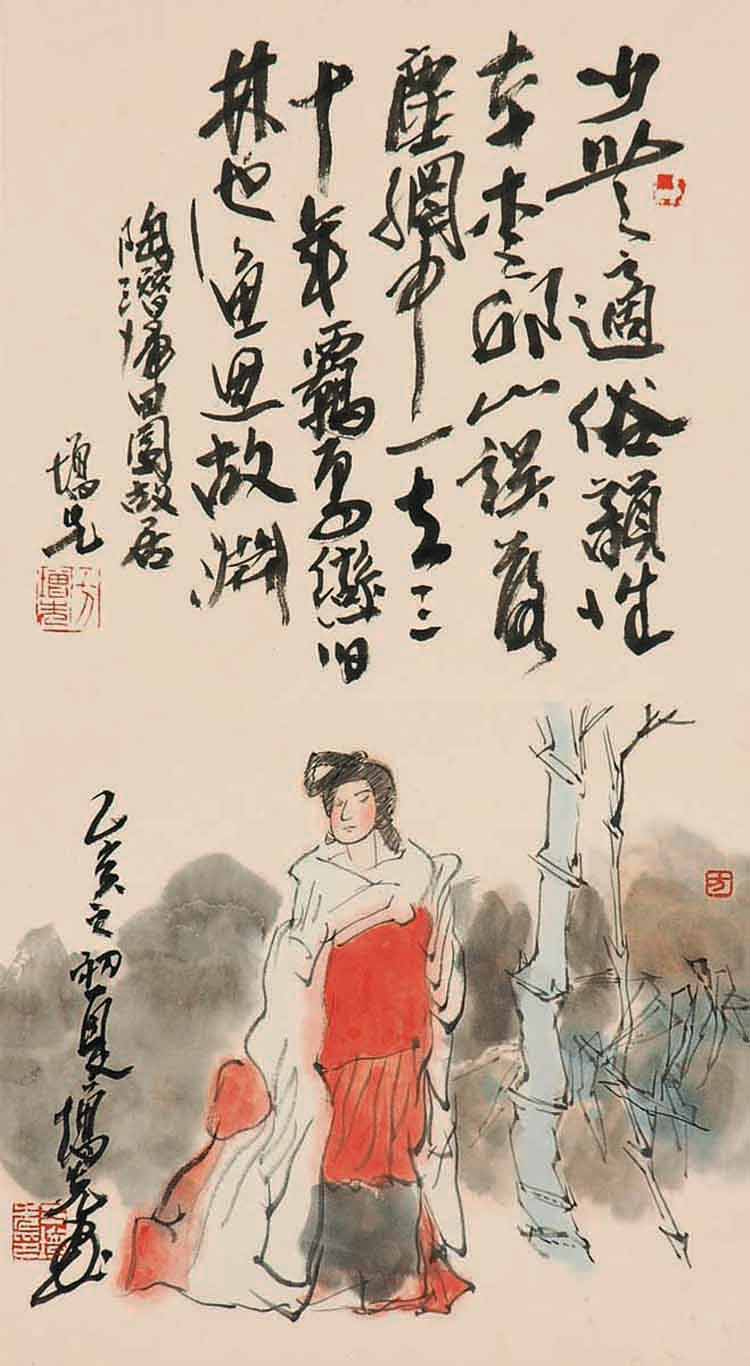 少無適俗韻性
本愛邱山誤落
塵網中一去三
十年羈鳥戀旧
林池魚思故淵
陶潛歸田園故居
增先
方增先
乙亥之初夏增先画
方